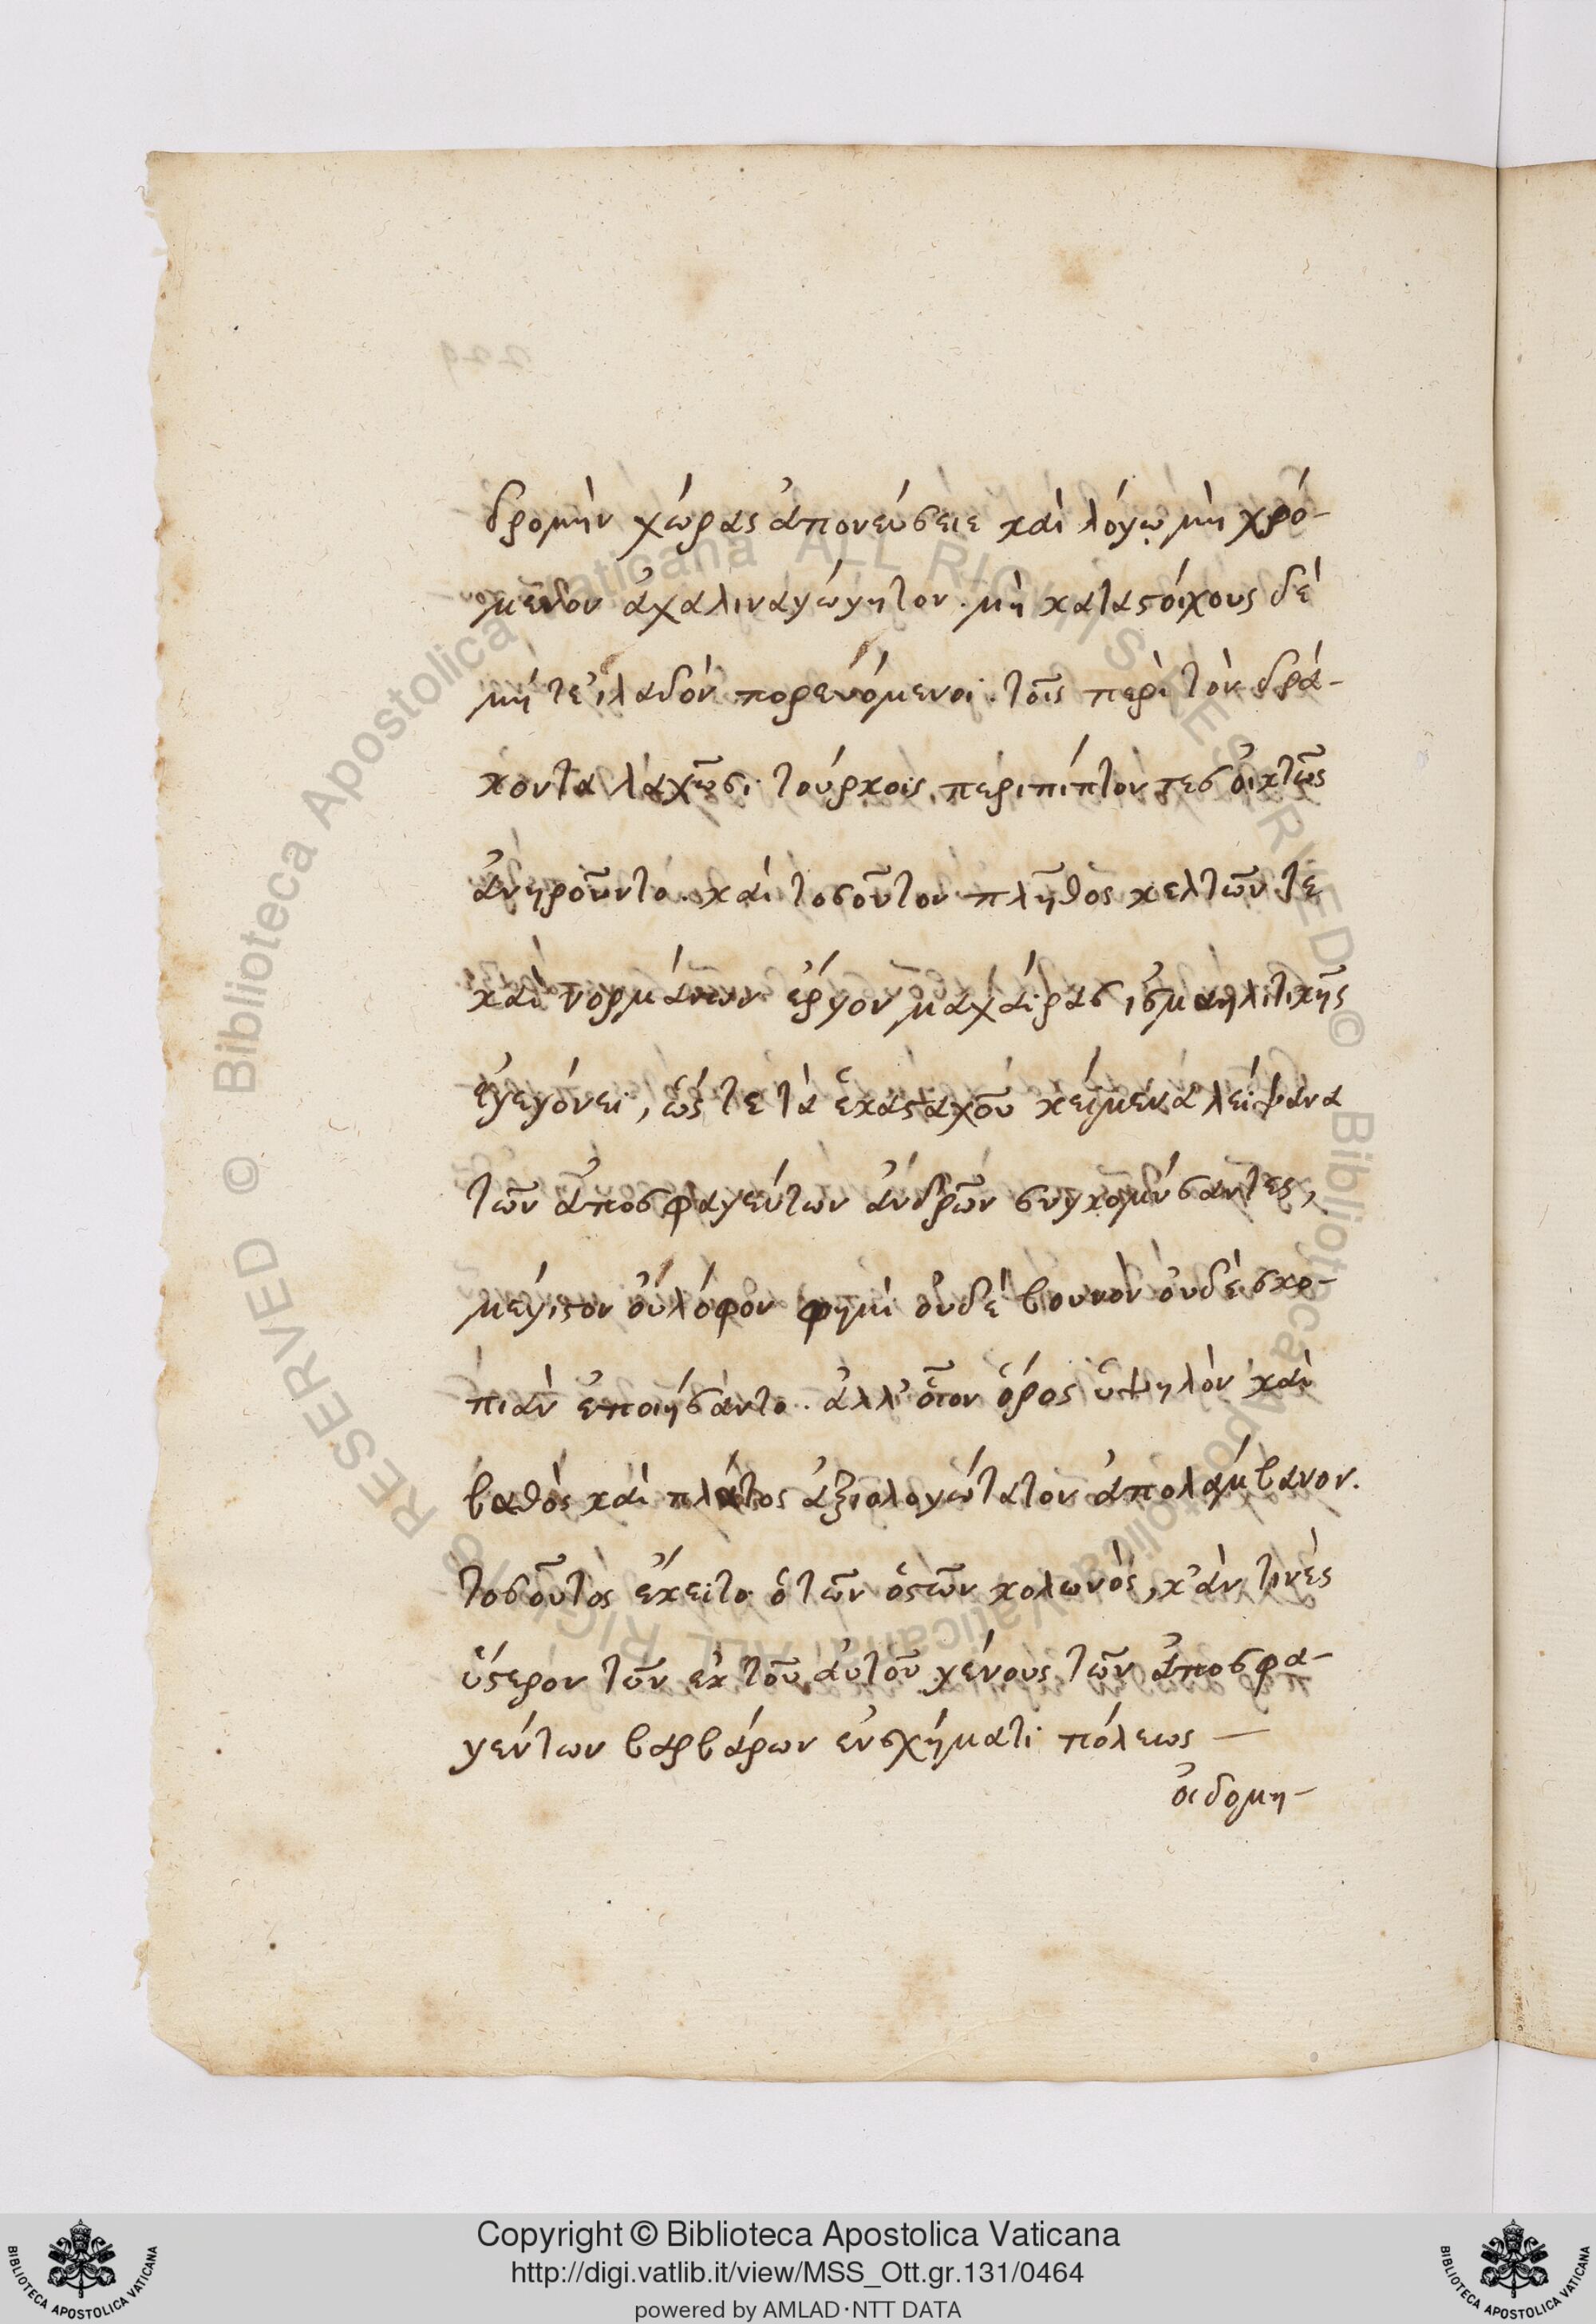 δρομὴν χώρας ἀπονεύσειε καὶ λόγῳ μὴ χρό-
μενον ἀχαλιναγώγητον. μὴ καταστοίχους δὲ
μήτε ἰλαδὸν πορευόμενοι. τοῖς περὶ τὸν δρά-
κοντα λαχῶσι τούρκοις, περιπίπτοντες οἰκτῶς
ἀνηροῦντο. καὶ τοσοῦτον πλῆθος κελτῶν τε
καὶ νορμάνων ἔργον μαχαίρας ἰσμαηλιτικῆς
ἐγεγόνει, ὥς τε τὰ ἑκασταχοῦ κείμενα λείψανα
τῶν ἀποσφαγέντων ἀνδρῶν συγκομήσαντες,
μέγιστον οὐ λόφον φημὶ οὐδὲ βουνὸν οὐδὲ σκο-
πιὰν ἐποιήσαντο. ἀλλ' οἷον ὄρος ὑψηλὸν καὶ
βαθὸς καὶ πλάτος ἀξιολογώτατον ἀπολαμβανον.
τοσοῦτος ἔκειτο ὁ τῶν ὀστῶν κολωνὸς, κ'ἄν τινὲς
ὕστερον τῶν ἐκ τοῦ αὐτοῦ γένους τῶν ἀποσφα-
γέντων βαρβάρων ἐν σχήματι πόλεως —
οἰδομη-
Copyright © Biblioteca Apostolica Vaticana
http://digi.vatlib.it/view/MSS_Ott.gr.131/0464
powered by AMLAD·NTT DATA
BIBLIOTECA APOSTOLICA VATICANA
BIBLIOTECA APOSTOLICA VATICANA